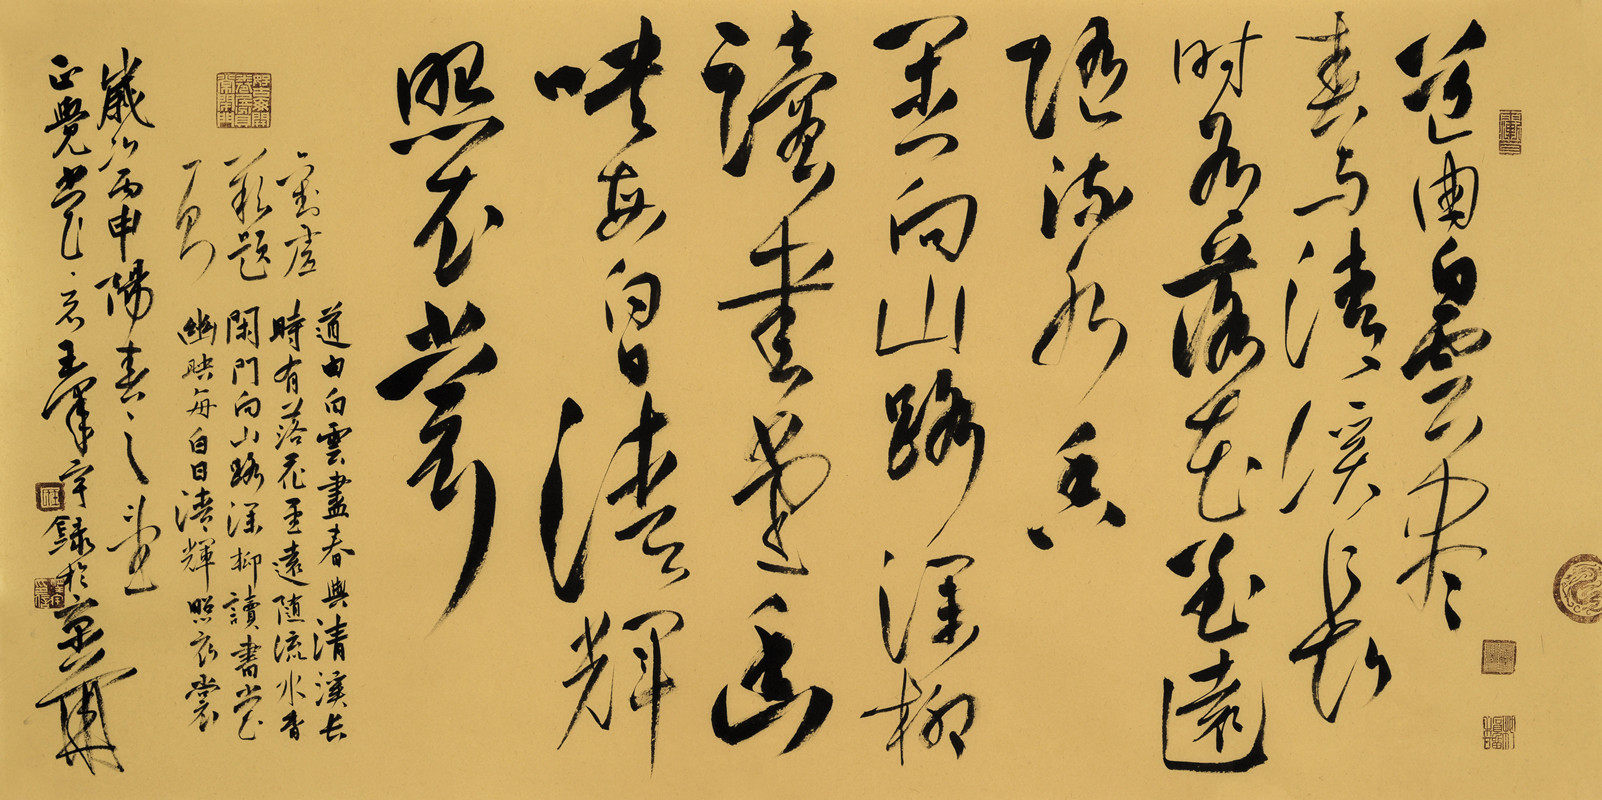 道由白雲尽
春与清溪长
时有落花至遠
随流水香
闲门向山路深柳
讀書堂幽
映每白日清輝
照衣裳
道由白雲盡春與清溪長
時有落花至遠随流水香
閑門向山路深柳讀書堂
幽映每白日清輝照衣裳
歲次丙申陽春之
正覺堂王澤宇錄於京